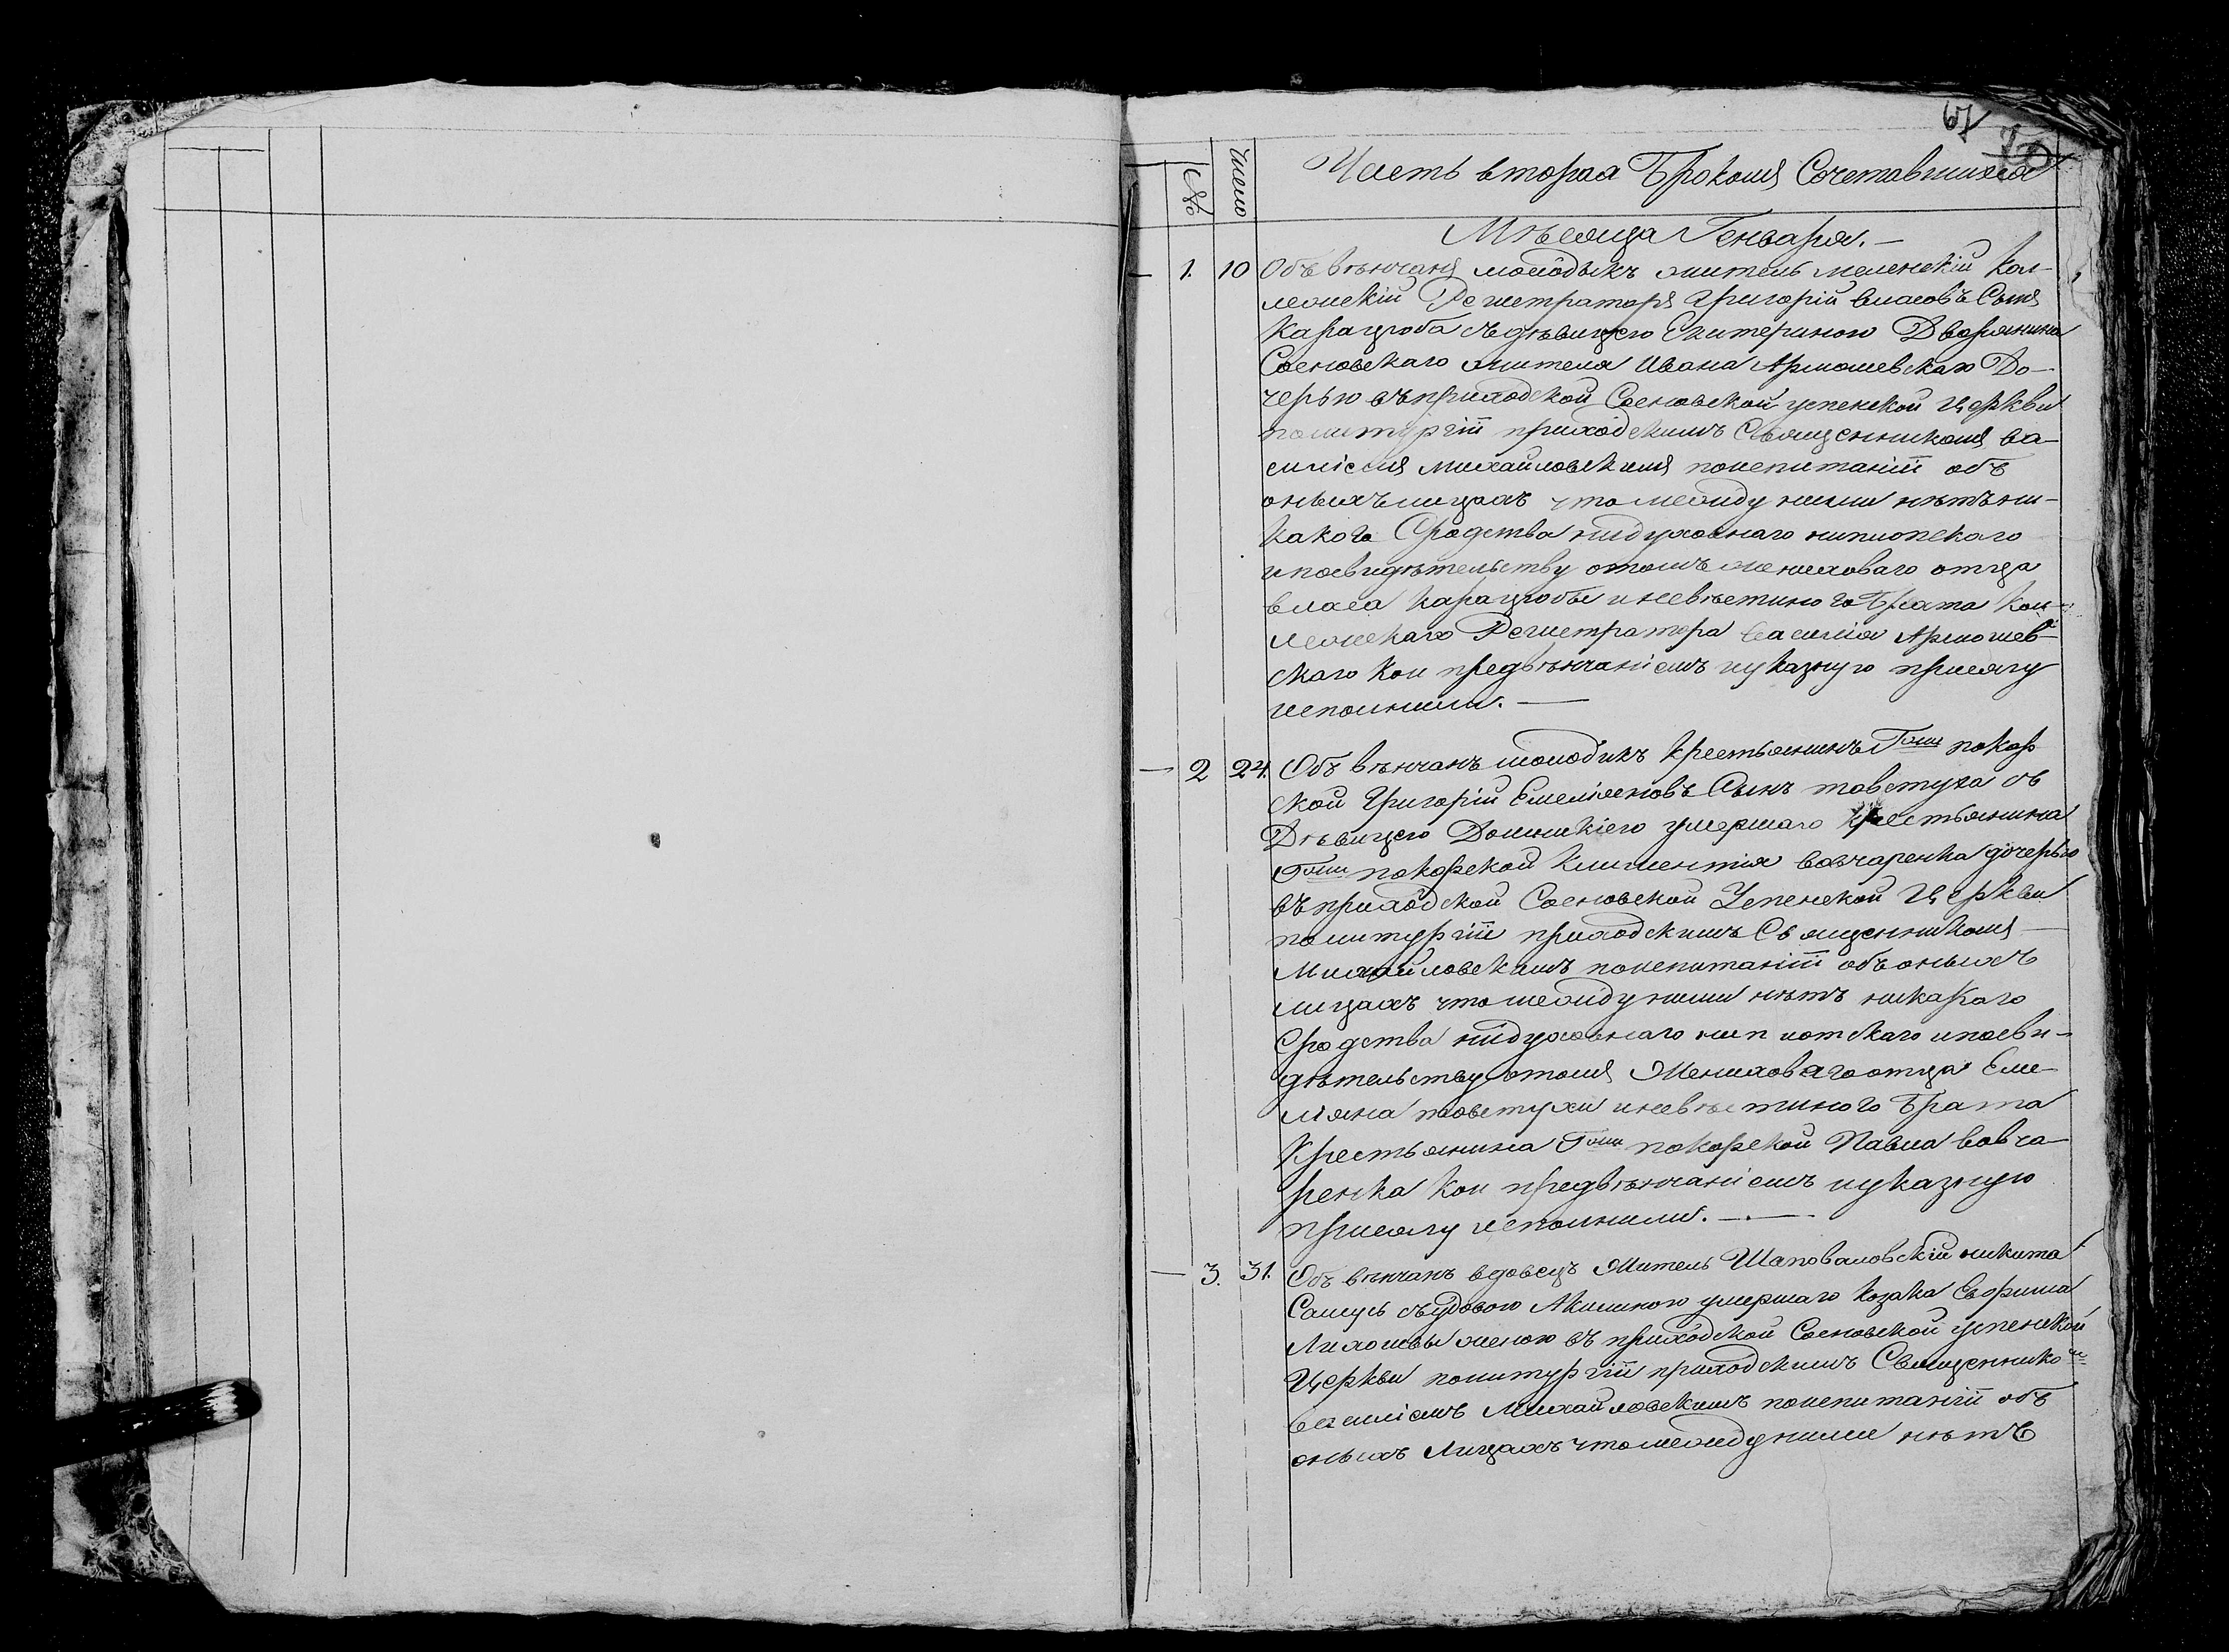 67
70
№ Число Часть вторая Бракомъ Сочетавшихся
Мѣсяца Генваря. —
1. 10 Объвѣнчанъ молодикъ житель менскій Кол-
лежскій Регистраторъ Григорій власовъ Сынъ
Карацюба съдѣвицею Екатериною Дворянина
Сосновскаго жителя Ивана Ярмошевскаго До-
черью въприходской Сосновской успенской Церкви
политургіи приходскимъ Священникомъ ва-
силіемъ михайловскимъ поиспитаніи объ
оныхъ лицахъ что между ними нѣтъ ни-
какого Сродства нидуховнаго ниплотскаго
ипосвидѣтельству отомъ жениховаго отца
власа карацюбы иневѣстиного Брата Кол-
лежскаго Регистратора василія Ярмошев-
скаго кои предвѣнчаніемъ иуказную присягу
исполнили. —
2 24. Объвѣнчанъ молодикъ крестьянинъ Гжи покор
ской Григорій Емеліяновъ Сынъ товстуха съ
Дѣвицею Домникіею умершаго крестьянина
Гжи покорской климентія вовчаренка дочерью
въприходской Сосновской Успенской Церкви
политургіи приходскимъ Священникомъ
Михайловскимъ поиспитаніи объоныхъ
лицахъ что между ними нѣтъ никакаго
Сродства нидуховнаго ниплотскаго ипосви-
дѣтельству отомъ Жениховаго отца Еме-
ліяна товстухи иневѣстиного Брата
Крестьянина Гжи покорской Павла вовча-
ренка кои предвѣнчаніемъ иуказную
присягу исполнили. —
3. 31. Объвѣнчанъ вдовецъ Житель Шаповаловскій никита
Самусь съвдовою Акилиною умершаго козака Евфима
женою въ приходской Сосновской успенской
Церкви политургіи приходскимъ Священникомъ
василіемъ Михайловскимъ поиспитаніи объ
оныхъ лицахъ что между ними нѣтъ